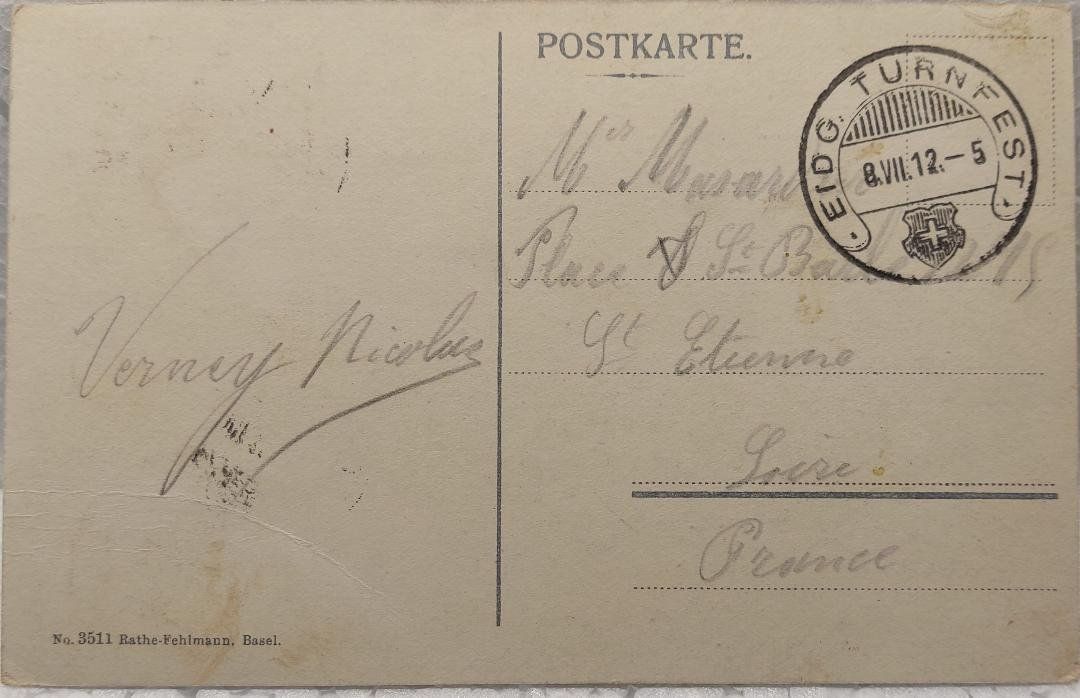 POSTKARTE.
EIDG. TURNFEST.
8.VII.12.–5
Mr
Place St
St Etienne
Loire
France
Verney Nicolas
No. 3511 Rathe-Fehlmann, Basel.